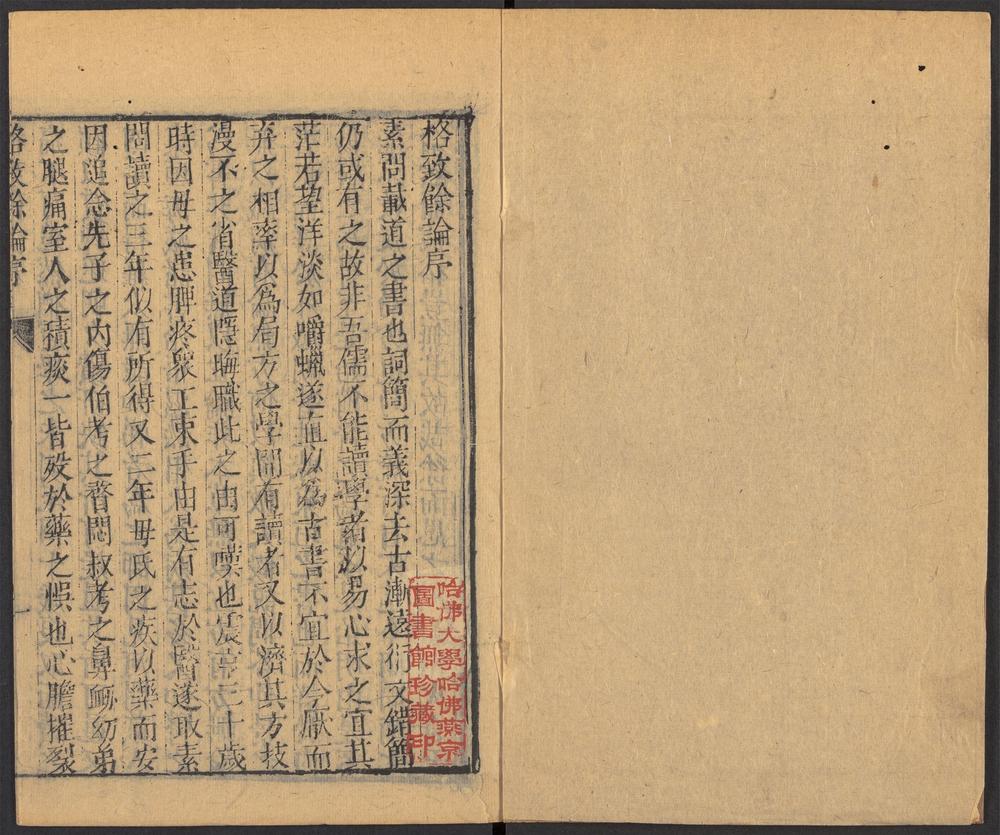 格致餘論序
素問載道之書也詞簡而義深去古漸遠衍文錯簡
仍或有之故非吾儒不能讀學者以易心求之宜其
茫若望洋淡如嚼蠟遂直以為古書不宜於今厭而
弃之相率以為局方之學間有讀者又以濟其方技
漫不之省醫道隱晦職此之由可嘆也震亨三十歲
時因母之患脾疼衆工束手由是有志於醫遂取素
問讀之三年似有所得又二年母氏之疾以藥而安
因追念先子之內傷伯考之瞀悶叔考之鼻衄幼弟
之腿痛室人之積痰一皆歿於藥之悮也心膽摧裂
格致餘論序
一
哈佛大學哈佛燕京
圖書館珍藏印